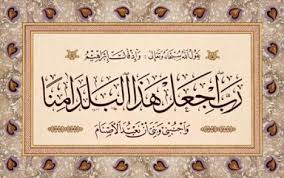 يقول الله سبحانه وتعالى: وإذ قال إبراهيم
رب اجعل هذا البلد آمنا
واجنبني وبني أن نعبد الأصنام